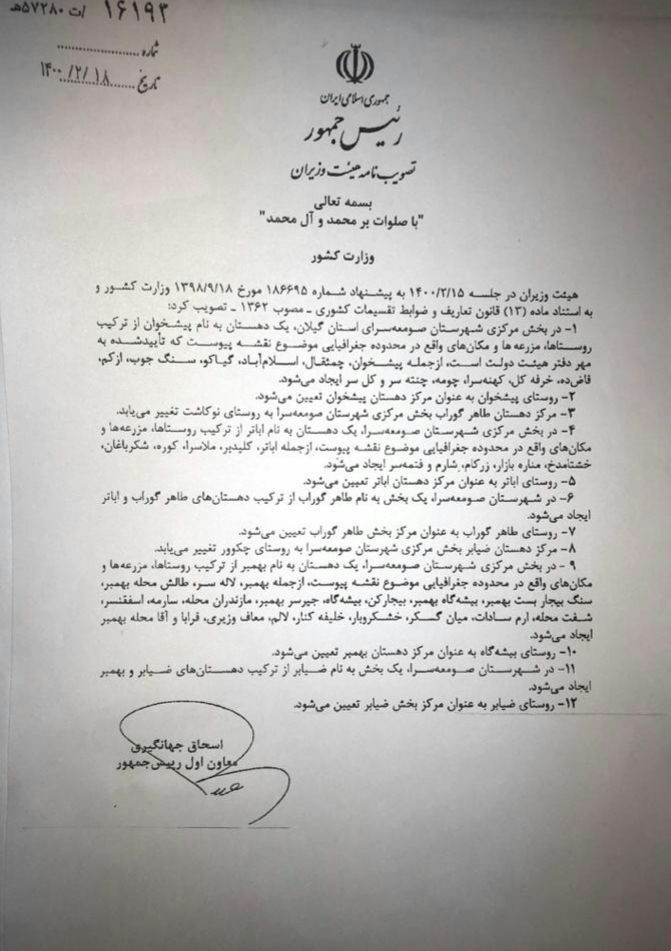 ۱۶۱۹۳ /ت ۵۷۲۸۰هـ
شماره ....................
تاریخ ۱۴۰۰/۲/۱۸
جمهوری اسلامی ایران
رئیس جمهور
تصویب نامه هیئت وزیران
بسمه تعالی
"با صلوات بر محمد و آل محمد"
وزارت کشور
هیئت وزیران در جلسه ۱۴۰۰/۲/۱۵ به پیشنهاد شماره ۱۸۶۶۹۵ مورخ ۱۳۹۸/۹/۱۸ وزارت کشور و
به استناد ماده (۱۳) قانون تعاریف و ضوابط تقسیمات کشوری ـ مصوب ۱۳۶۲ ـ تصویب کرد:
۱- در بخش مرکزی شهرستان صومعه‌سرای استان گیلان، یک دهستان به نام پیشخوان از ترکیب
روستاها، مزرعه ها و مکان‌های واقع در محدوده جغرافیایی موضوع نقشه پیوست که تأییدشده به
مهر دفتر هیئت دولت است، ازجمله پیشخوان، چمثقال، اسلام‌آباد، گیاکو، سنگ جوب، ازکم،
قاض‌ده، خرفه کل، کهنه‌سرا، چومه، چنته سر و کل سر ایجاد می‌شود.
۲- روستای پیشخوان به عنوان مرکز دهستان پیشخوان تعیین می‌شود.
۳- مرکز دهستان طاهر گوراب بخش مرکزی شهرستان صومعه‌سرا به روستای نوکاشت تغییر می‌یابد.
۴- در بخش مرکزی شهرستان صومعه‌سرا، یک دهستان به نام اباتر از ترکیب روستاها، مزرعه‌ها و
مکان‌های واقع در محدوده جغرافیایی موضوع نقشه پیوست، ازجمله اباتر، کلیدبر، ملاسرا، کوره، شکرباغان،
خشتامدخ، مناره بازار، زرکام، شارم و فتمه‌سر ایجاد می‌شود.
۵- روستای اباتر به عنوان مرکز دهستان اباتر تعیین می‌شود.
۶- در شهرستان صومعه‌سرا، یک بخش به نام طاهر گوراب از ترکیب دهستان‌های طاهر گوراب و اباتر
ایجاد می‌شود.
۷- روستای طاهر گوراب به عنوان مرکز بخش طاهر گوراب تعیین می‌شود.
۸- مرکز دهستان ضیابر بخش مرکزی شهرستان صومعه‌سرا به روستای چکوور تغییر می‌یابد.
۹ - در بخش مرکزی شهرستان صومعه‌سرا، یک دهستان به نام بهمبر از ترکیب روستاها، مزرعه‌ها و
مکان‌های واقع در محدوده جغرافیایی موضوع نقشه پیوست، ازجمله بهمبر، لاله سر، طالش محله بهمبر،
سنگ بیجار بست بهمبر، بیشه‌گاه بهمبر، بیجارکن، بیشه‌گاه، جیرسر بهمبر، مازندران محله، سارمه، اسفقنسر،
شفت محله، ارم سادات، میان گسکر، خشکروبار، خلیفه کنار، لالم، معاف وزیری، قرابا و آقا محله بهمبر
ایجاد می‌شود.
۱۰- روستای بیشه‌گاه به عنوان مرکز دهستان بهمبر تعیین می‌شود.
۱۱- در شهرستان صومعه‌سرا، یک بخش به نام ضیابر از ترکیب دهستان‌های ضیابر و بهمبر
ایجاد می‌شود.
۱۲- روستای ضیابر به عنوان مرکز بخش ضیابر تعیین می‌شود.
اسحاق جهانگیری
معاون اول رییس‌جمهور